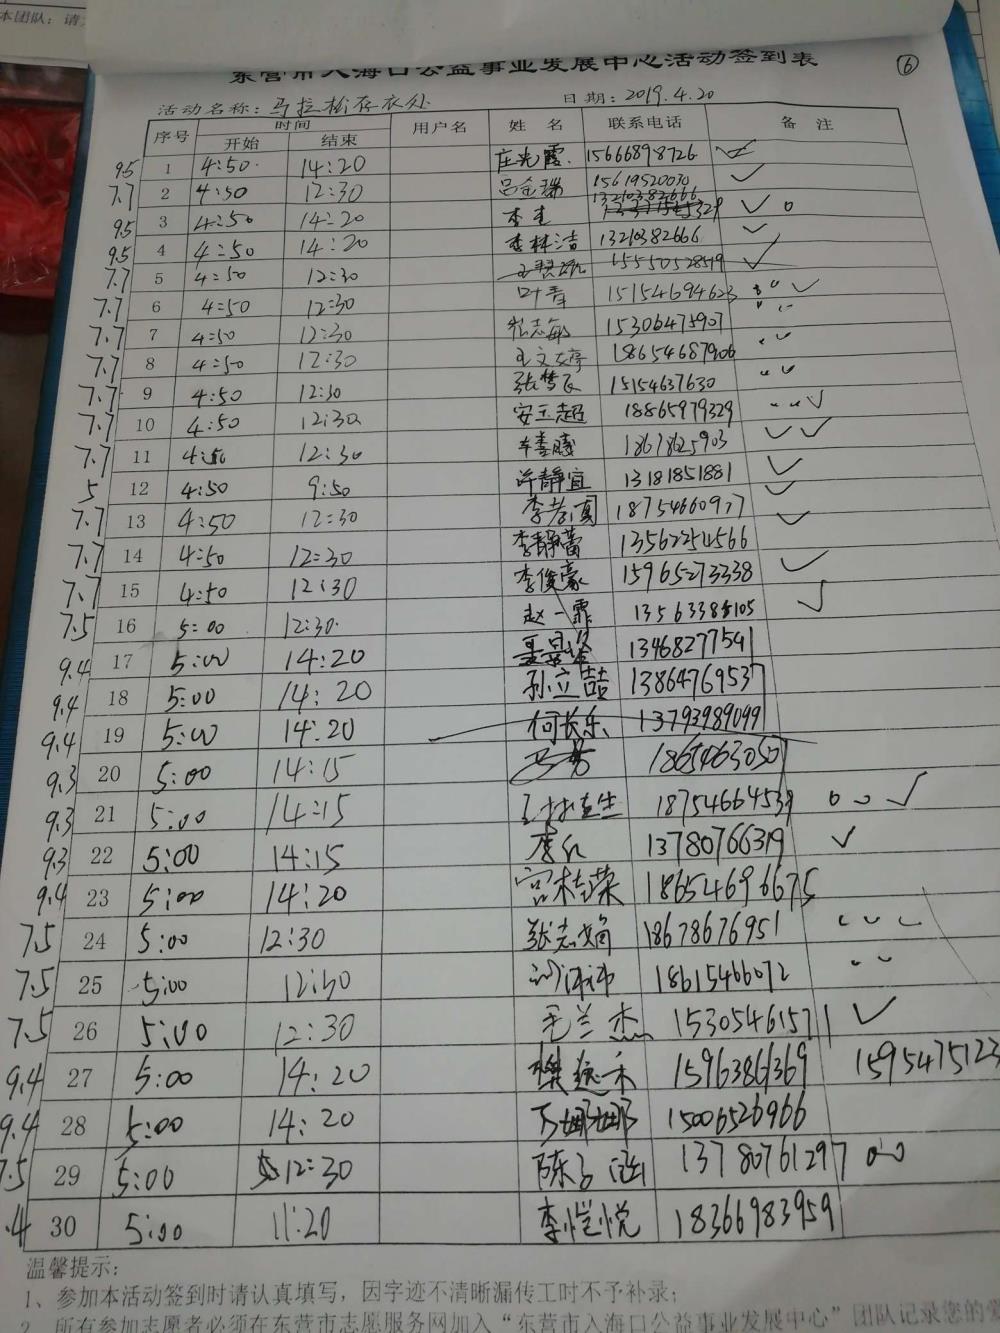 本团队：请
东营市入海口公益事业发展中心活动签到表 ⑥
活动名称：马拉松存衣处 日期：2019.4.20
序号 时间 用户名 姓 名 联系电话 备 注
开始 结束
9.5 1 4:50 14:20 庄光霞 15666898726
7.7 2 4:50 12:30 吕金瑞 15619520030
9.5 3 4:50 14:20 李 13210382666
9.5 4 4:50 14:20 李林洁 13210382666
7.7 5 4:50 12:30 15550528519
7.7 6 4:50 12:30 叶青 15154694623
7.7 7 4:50 12:30 张志敏 15306475907
7.7 8 4:50 12:30 王文婷 18654687906
7.7 9 4:50 12:30 张梦 15154637630
7.7 10 4:50 12:30 安玉超 18865979329
7.7 11 4:50 12:30 18678625903
5 12 4:50 9:50 许静宜 13181851881
7.7 13 4:50 12:30 李 真 18754660977
7.7 14 4:50 12:30 李静蕾 13562254566
7.7 15 4:50 12:30 李俊豪 15965273338
7.5 16 5:00 12:30 赵一霏 13563385105
9.4 17 5:00 14:20 13468277541
9.4 18 5:00 14:20 孙立喆 13864769537
9.4 19 5:00 14:20 何长乐 13793989099
9.3 20 5:00 14:15 18654630507
9.3 21 5:00 14:15 18754664539
9.3 22 5:00 14:15 李红 13780766319
9.4 23 5:00 14:20 宫桂荣 18654696675
7.5 24 5:00 12:30 张志娟 18678676951
7.5 25 5:00 12:30 18615466072
7.5 26 5:00 12:30 毛兰杰 15305461571
9.4 27 5:00 14:20 15963866369 1595475123
9.4 28 5:00 14:20 万娜娜 15006526966
7.5 29 5:00 12:30 陈子涵 13780761297
.4 30 5:00 11:20 李恺悦 18366983959
温馨提示：
1、参加本活动签到时请认真填写，因字迹不清晰漏传工时不予补录；
2、所有参加志愿者必须在东营市志愿服务网加入“东营市入海口公益事业发展中心”团队记录您的